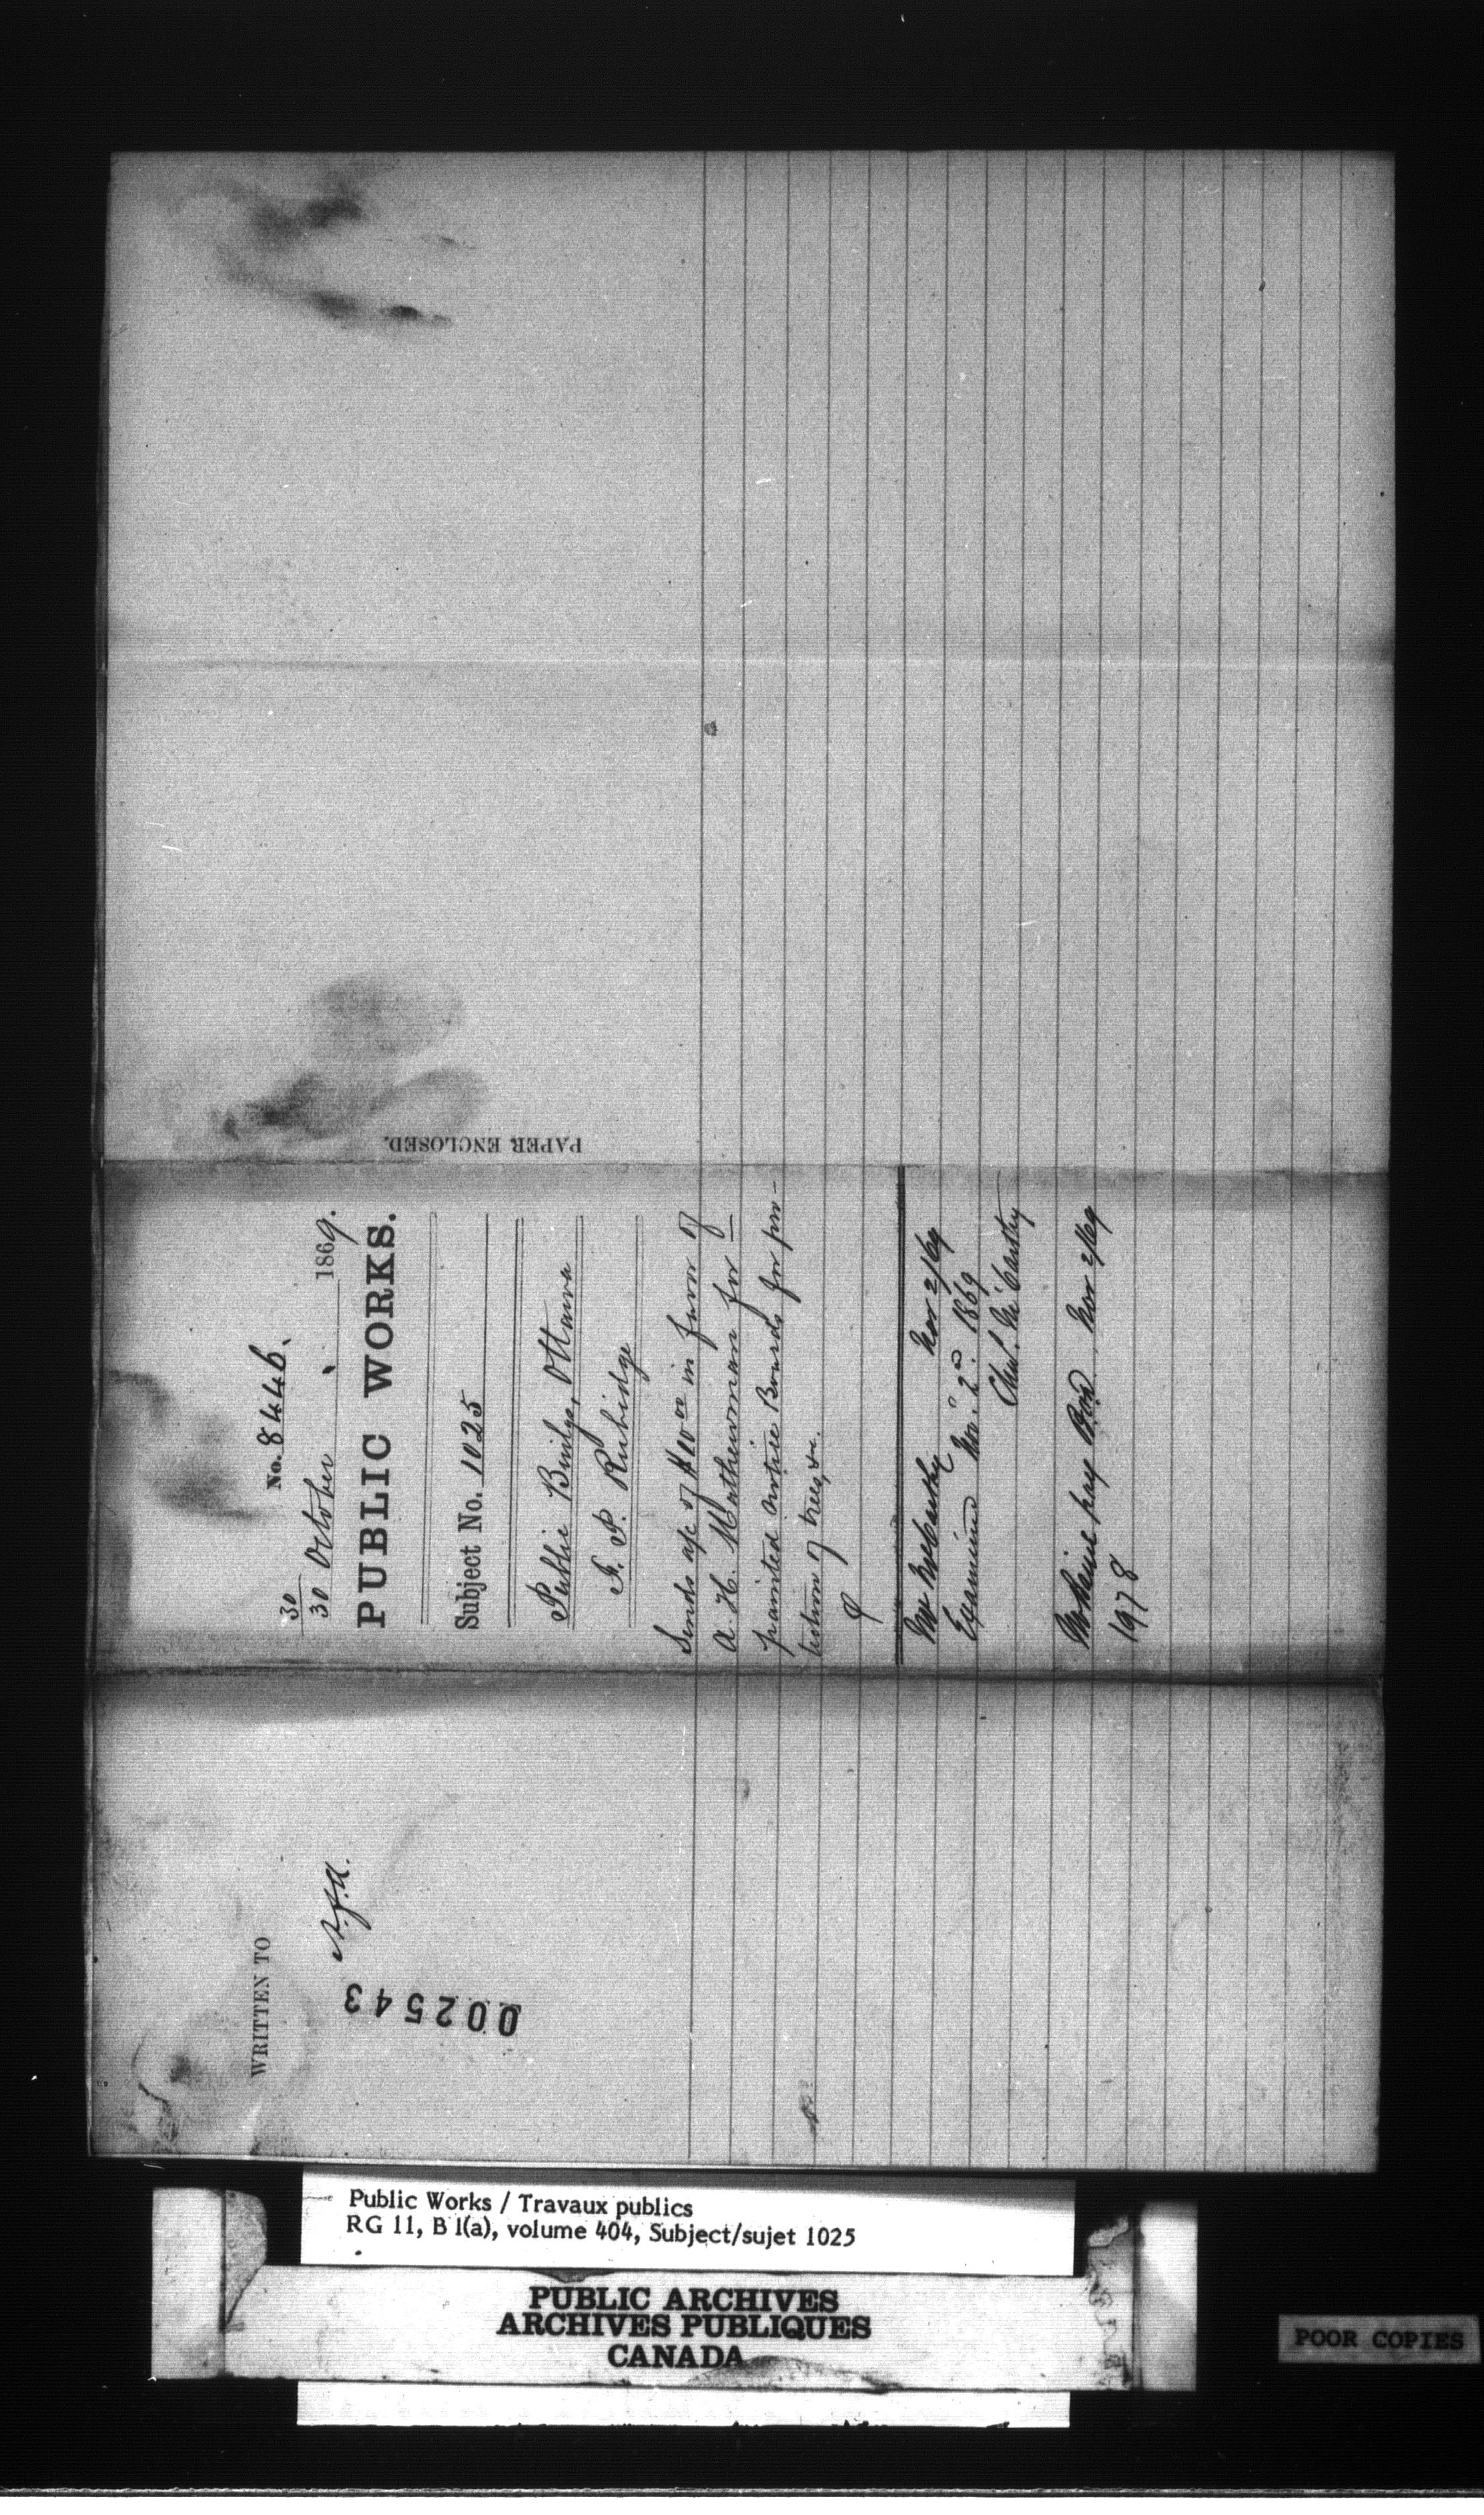 No. 8446.
30
30 October 1869.
PUBLIC WORKS.
Subject No. 1025
Public Buildgs, Ottawa
F. P. Rubidge
Sends a/c of $10.00 in favor of
A. H. Mathewman for
painted Notice Boards for pro-
tection of trees, &c.
Mr McCarthy Nov 2/69
Examined Nov. 2nd. 1869
Chs. McCarthy
pay Nov 2/69
1978
PAPER ENCLOSED.
WRITTEN TO
002543
Public Works / Travaux publics
RG 11, B 1(a), volume 404, Subject/sujet 1025
PUBLIC ARCHIVES
ARCHIVES PUBLIQUES
CANADA
POOR COPIES